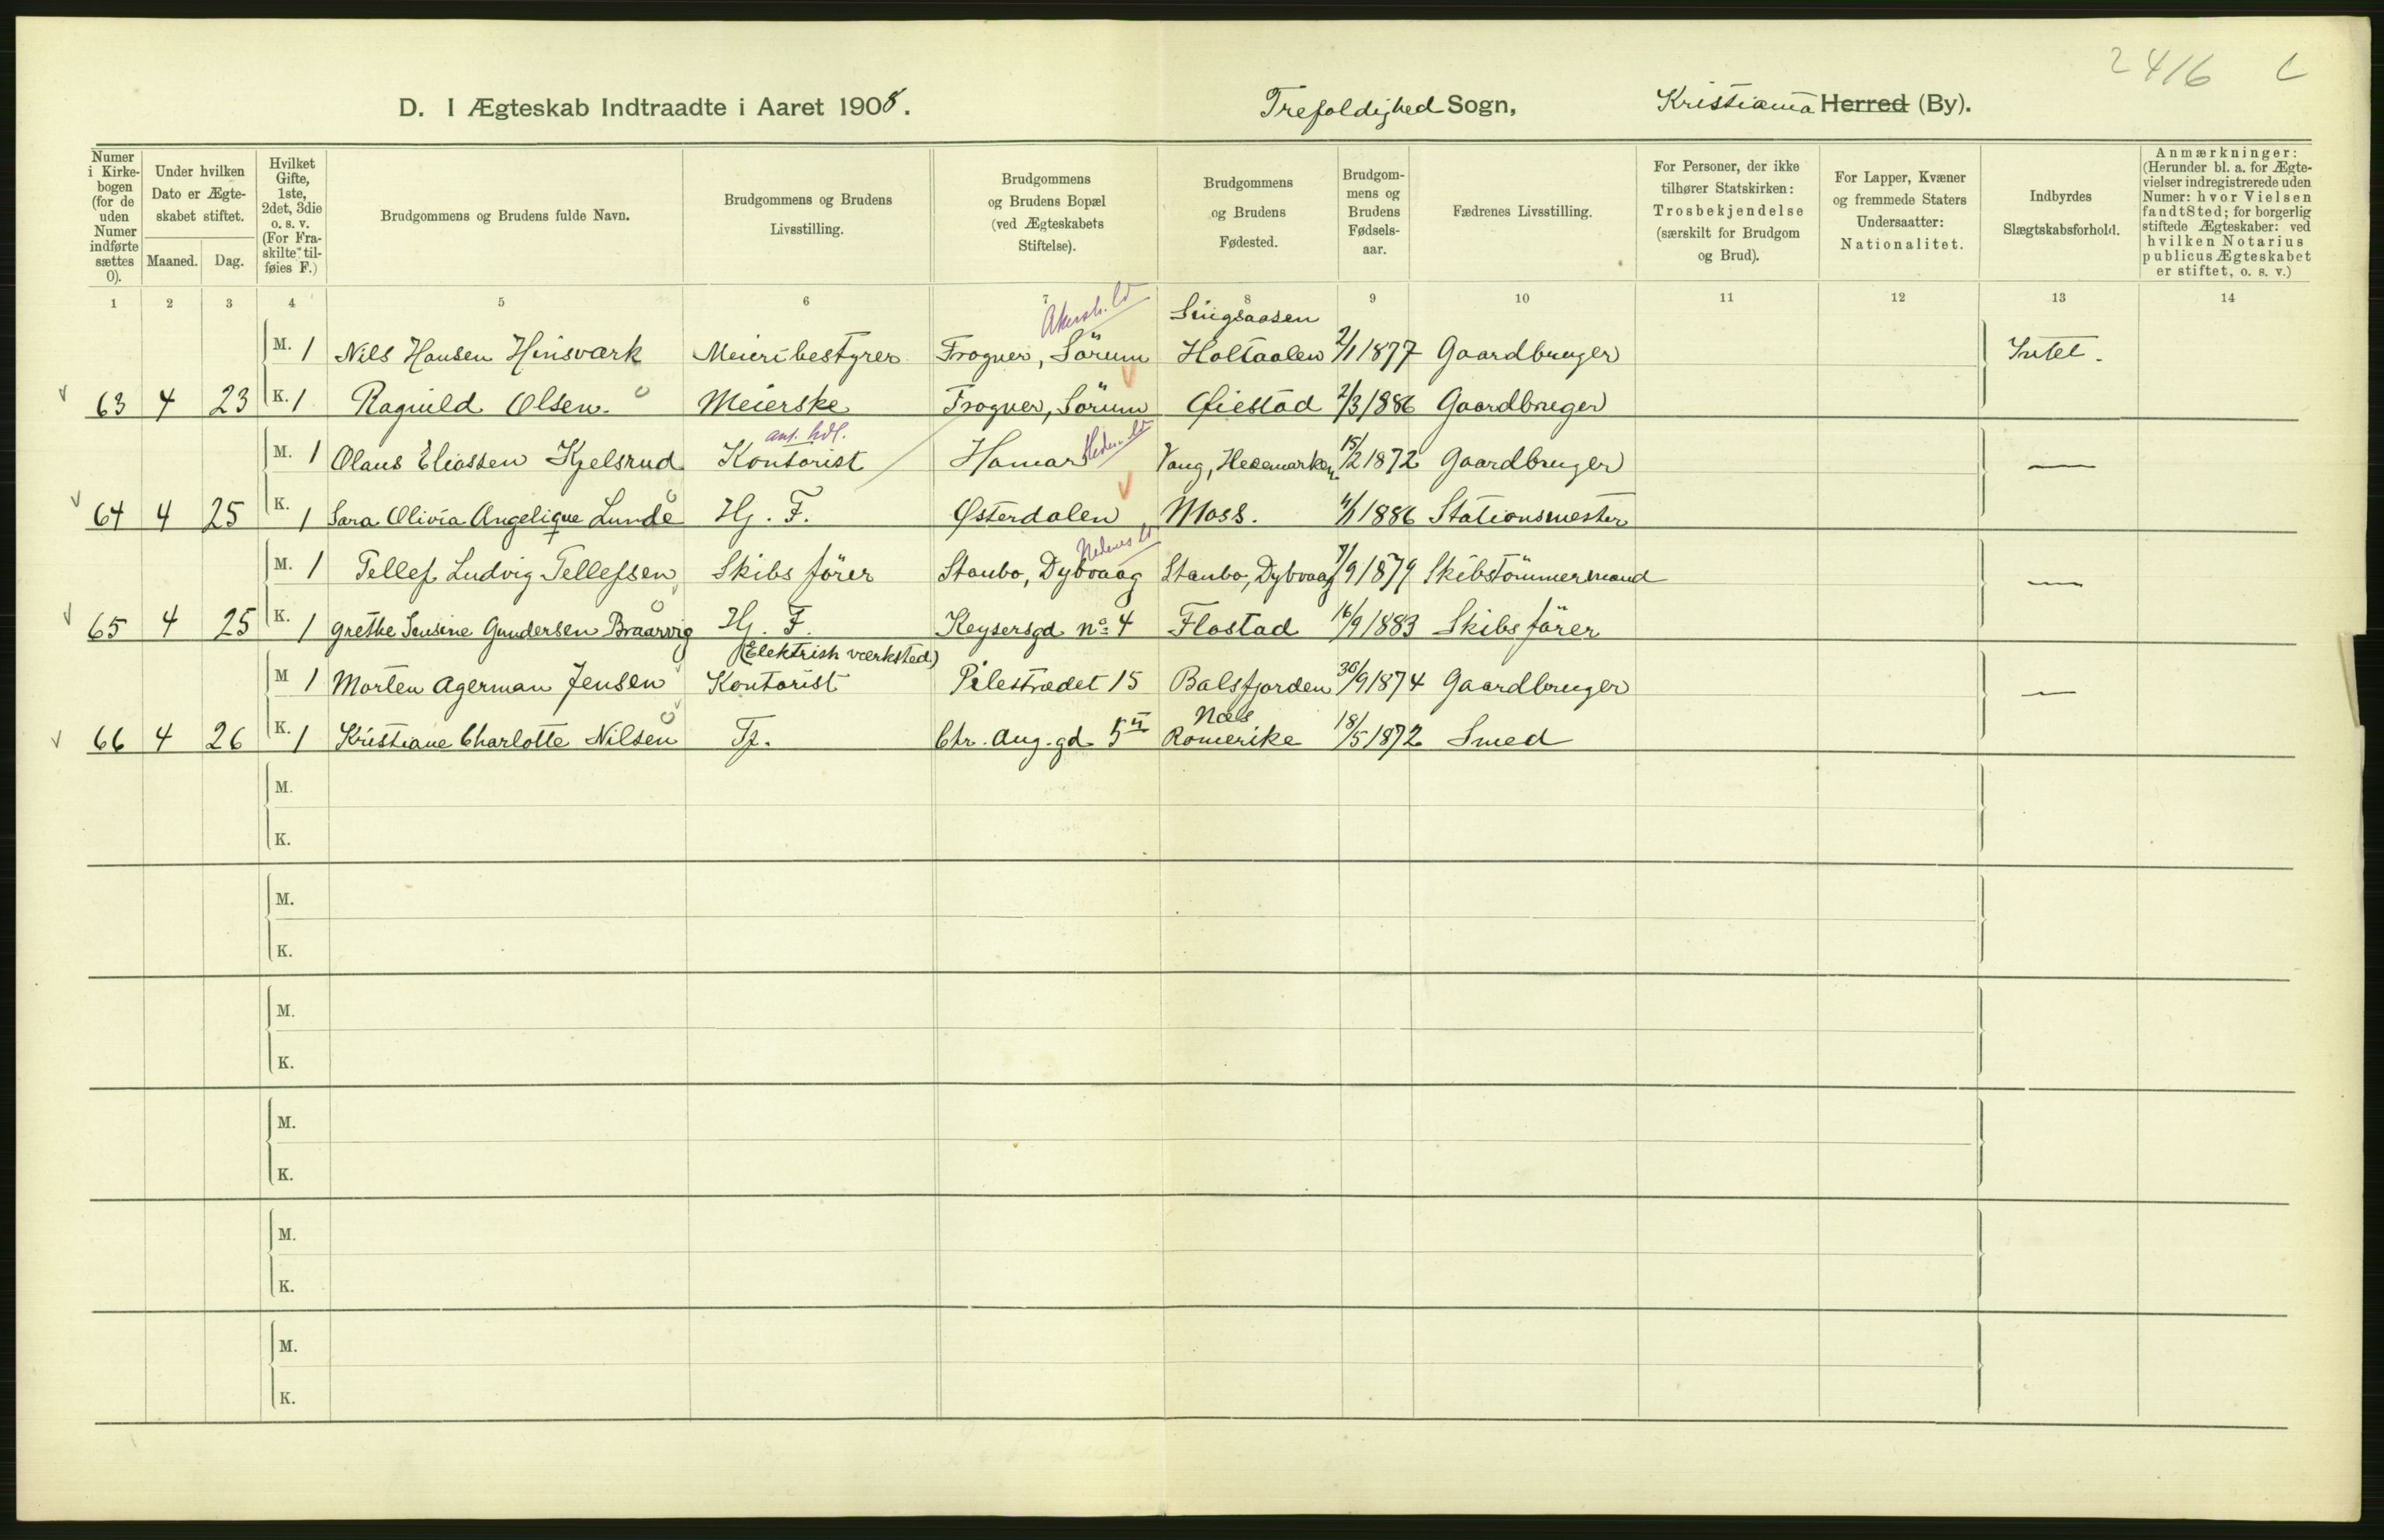 2416 L
D. I Ægteskab Indtraadte i Aaret 1908. Trefoldighed Sogn, Kristiania Herred (By).
Numer i Kirkebogen (for de uden Numer indførte sættes 0).
Under hvilken Dato er Ægteskabet stiftet.
Maaned. Dag.
Hvilket Gifte, 1ste, 2det, 3die o. s. v. (For Fraskilte tilføies F.)
Brudgommens og Brudens fulde Navn.
Brudgommens og Brudens Livsstilling.
Brudgommens og Brudens Bopæl (ved Ægteskabets Stiftelse).
Brudgommens og Brudens Fødested.
Brudgommens og Brudens Fødselsaar.
Fædrenes Livsstilling.
For Personer, der ikke tilhører Statskirken: Trosbekjendelse (særskilt for Brudgom og Brud).
For Lapper, Kvæner og fremmede Staters Undersaatter: Nationalitet.
Indbyrdes Slægtskabsforhold.
Anmærkninger: (Herunder bl. a. for Ægtevielser indregistrerede uden Numer: hvor Vielsen fandt Sted; for borgerlig stiftede Ægteskaber: ved hvilken Notarius publicus Ægteskabet er stiftet, o. s. v.)
1 2 3 4 5 6 7 8 9 10 11 12 13 14
Akersh. ld Singsaasen
M. 1 Nils Hansen Hinsværk Meieribestyrer Frogner, Sörum Holtaalen 2/1 1877 Gaardbruger Intet.
63 4 23 K. 1 Ragnild Olsen. Meierske Frogner, Sörum Øiestad 2/3 1886 Gaardbruger
ant. hdl. Hedem. ld
M. 1 Olaus Eliassen Kjelsrud Kontorist Hamar Vang, Hedemarken 15/2 1872 Gaardbruger —
64 4 25 K. 1 Sara Olivia Angelique Lunde Hj. F. Østerdalen Moss. 4/1 1886 Stationsmester
Nedenes ld
M. 1 Tellef Ludvig Tellefsen Skibsförer Staubo, Dybvaag Staubo, Dybvaag 7/9 1879 Skibstömmermand —
65 4 25 K. 1 Grethe Jensine Gundersen Braarvig Hj. F. Keysersgd no 4 Flostad 16/9 1883 Skibsförer
(Elektrisk værksted)
M 1 Morten Agerman Jensen Kontorist Pilestrædet 15 Balsfjorden 30/9 1874 Gaardbruger —
Næs
66 4 26 K. 1 Kristiane Charlotte Nilsen Tj. Chr. Aug. gd. 5 II Romerike 18/5 1872 Smed
M.
K.
M.
K.
M.
K.
M.
K.
M.
K.
M.
K.